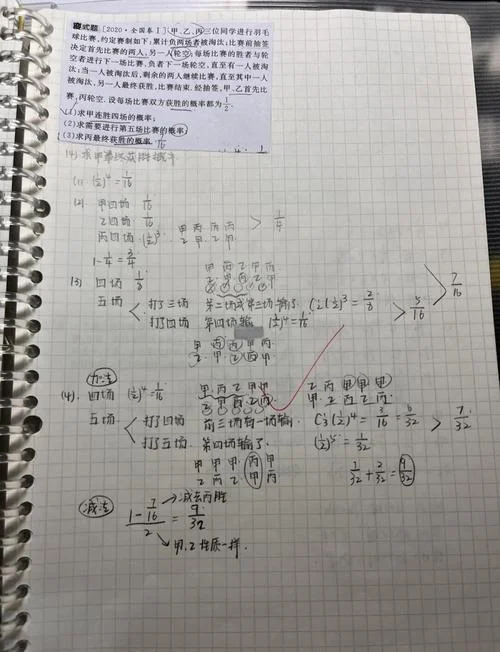 变式题 [2020·全国卷Ⅰ] 甲、乙、丙三位同学进行羽毛
球比赛,约定赛制如下:累计负两场者被淘汰;比赛前抽签
决定首先比赛的两人,另一人轮空;每场比赛的胜者与轮
空者进行下一场比赛,负者下一场轮空,直至有一人被淘
汰;当一人被淘汰后,剩余的两人继续比赛,直至其中一人
被淘汰,另一人最终获胜,比赛结束.经抽签,甲、乙首先比
赛,丙轮空.设每场比赛双方获胜的概率都为1/2.
(1)求甲连胜四场的概率;
(2)求需要进行第五场比赛的概率;
(3)求丙最终获胜的概率. 7/16
(4) 求甲最终获胜概率
(1) (1/2)^4 = 1/16
(2) 甲四场 1/16
乙四场 1/16
丙四场 (1/2)^3 > 1/4
甲 丙 丙 丙
乙 甲 乙 甲
1-1/4=3/4
(3) 四场 1/8
甲 丙 乙 丙 丙
五场 < 打了三场 第二场或第三场输了 C½(1/2)^3 = 2/8
打了四场 第四场输 (1/2)^4 = 1/16 > 5/16 > 7/16
甲 丙 丙 甲 丙
乙 甲 乙 丙 甲
加法
(4) 四场 (1/2)^4 = 1/16
甲 丙 乙 甲 甲
乙 丙 甲 甲 甲
甲 乙 丙 乙 丙
五场 < 打了四场 前三场有一场输 (1/2)^4 = 3/16 = 6/32
打了五场 第四场输了 (1/2)^5 = 1/32 > 7/32
甲 甲 甲 丙 甲
乙 丙 乙 甲 丙
7/32 + 2/32 = 9/32
减法
减去丙胜
(1-7/16)/2 = 9/32
甲,乙性质一样.